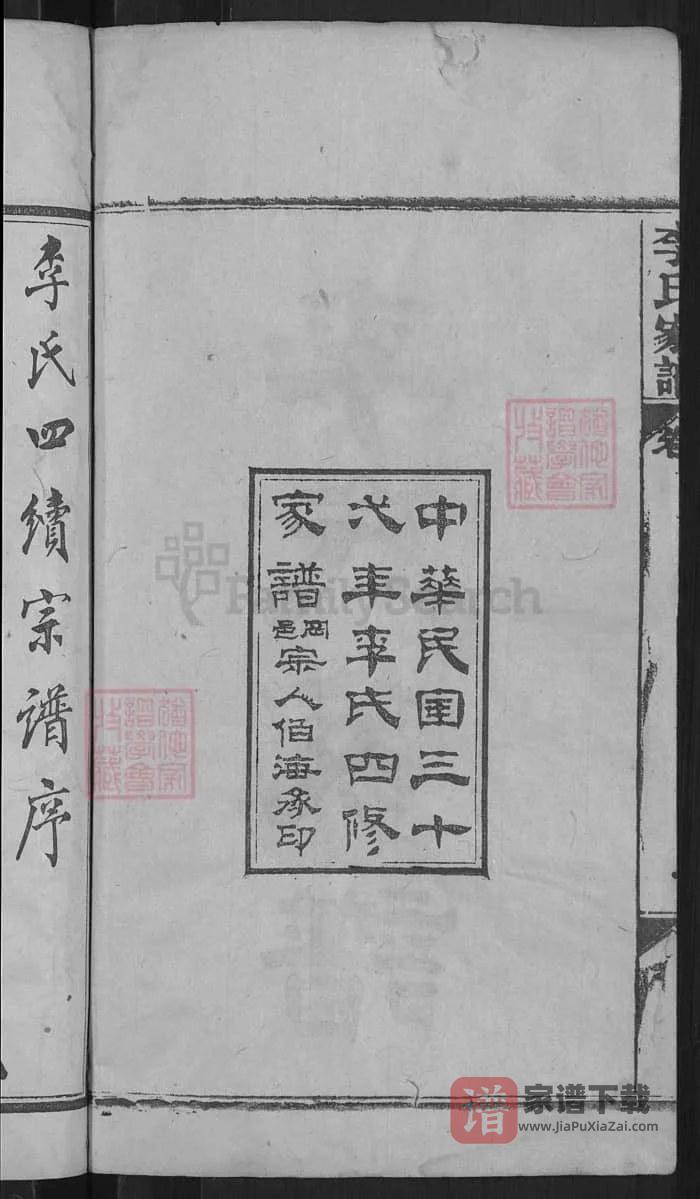 李氏家譜 卷
中華民國三十
六年李氏四修
家譜岡邑宗人伯海承印
李氏四續宗譜序
猶他家
譜學會
特藏
猶他家
譜學會
特藏
FamilySearch
谱 家谱下载
www.JiaPuXiaZai.com